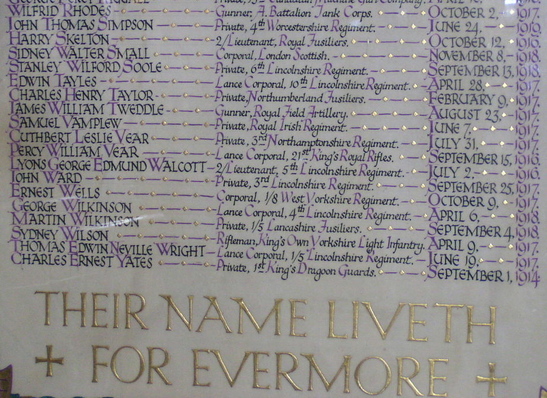 WILFRID RHODES Gunner, A Battalion Tank Corps. OCTOBER 2, 1917.
JOHN THOMAS SIMPSON Private, 4th Worcestershire Regiment. JUNE 24, 1916.
HARRY SKELTON 2/Lieutenant, Royal Fusiliers. OCTOBER 12, 1916.
SIDNEY WALTER SMALL Corporal, London Scottish. NOVEMBER 8, 1918.
STANLEY WILFORD SOOLE Private, 6th Lincolnshire Regiment. SEPTEMBER 13, 1918.
EDWIN TAYLES Lance Corporal, 10th Lincolnshire Regiment. APRIL 28, 1917.
CHARLES HENRY TAYLOR Private, Northumberland Fusiliers. FEBRUARY 9, 1917.
JAMES WILLIAM TWEDDLE Gunner, Royal Field Artillery. AUGUST 23, 1917.
SAMUEL VAMPLEW Private, Royal Irish Regiment. JUNE 7, 1917.
CUTHBERT LESLIE VEAR Private, 3rd Northamptonshire Regiment. JULY 31, 1917.
PERCY WILLIAM VEAR Lance Corporal, 21st King's Royal Rifles. SEPTEMBER 15, 1916.
LYONS GEORGE EDMUND WALCOTT 2/Lieutenant, 5th Lincolnshire Regiment. JULY 2, 1916.
JOHN WARD Private, 3rd Lincolnshire Regiment. SEPTEMBER 25, 1917.
ERNEST WELLS Corporal, 1/8 West Yorkshire Regiment. OCTOBER 9, 1917.
GEORGE WILKINSON Lance Corporal, 4th Lincolnshire Regiment. APRIL 6, 1918.
MARTIN WILKINSON Private, 1/5 Lancashire Fusiliers. SEPTEMBER 4, 1918.
SYDNEY WILSON Rifleman, King's Own Yorkshire Light Infantry. APRIL 9, 1917.
THOMAS EDWIN NEVILLE WRIGHT Lance Corporal, 1/5 Lincolnshire Regiment. JUNE 19, 1917.
CHARLES ERNEST YATES Private, 1st King's Dragoon Guards. SEPTEMBER 1, 1914
THEIR NAME LIVETH
FOR EVERMORE